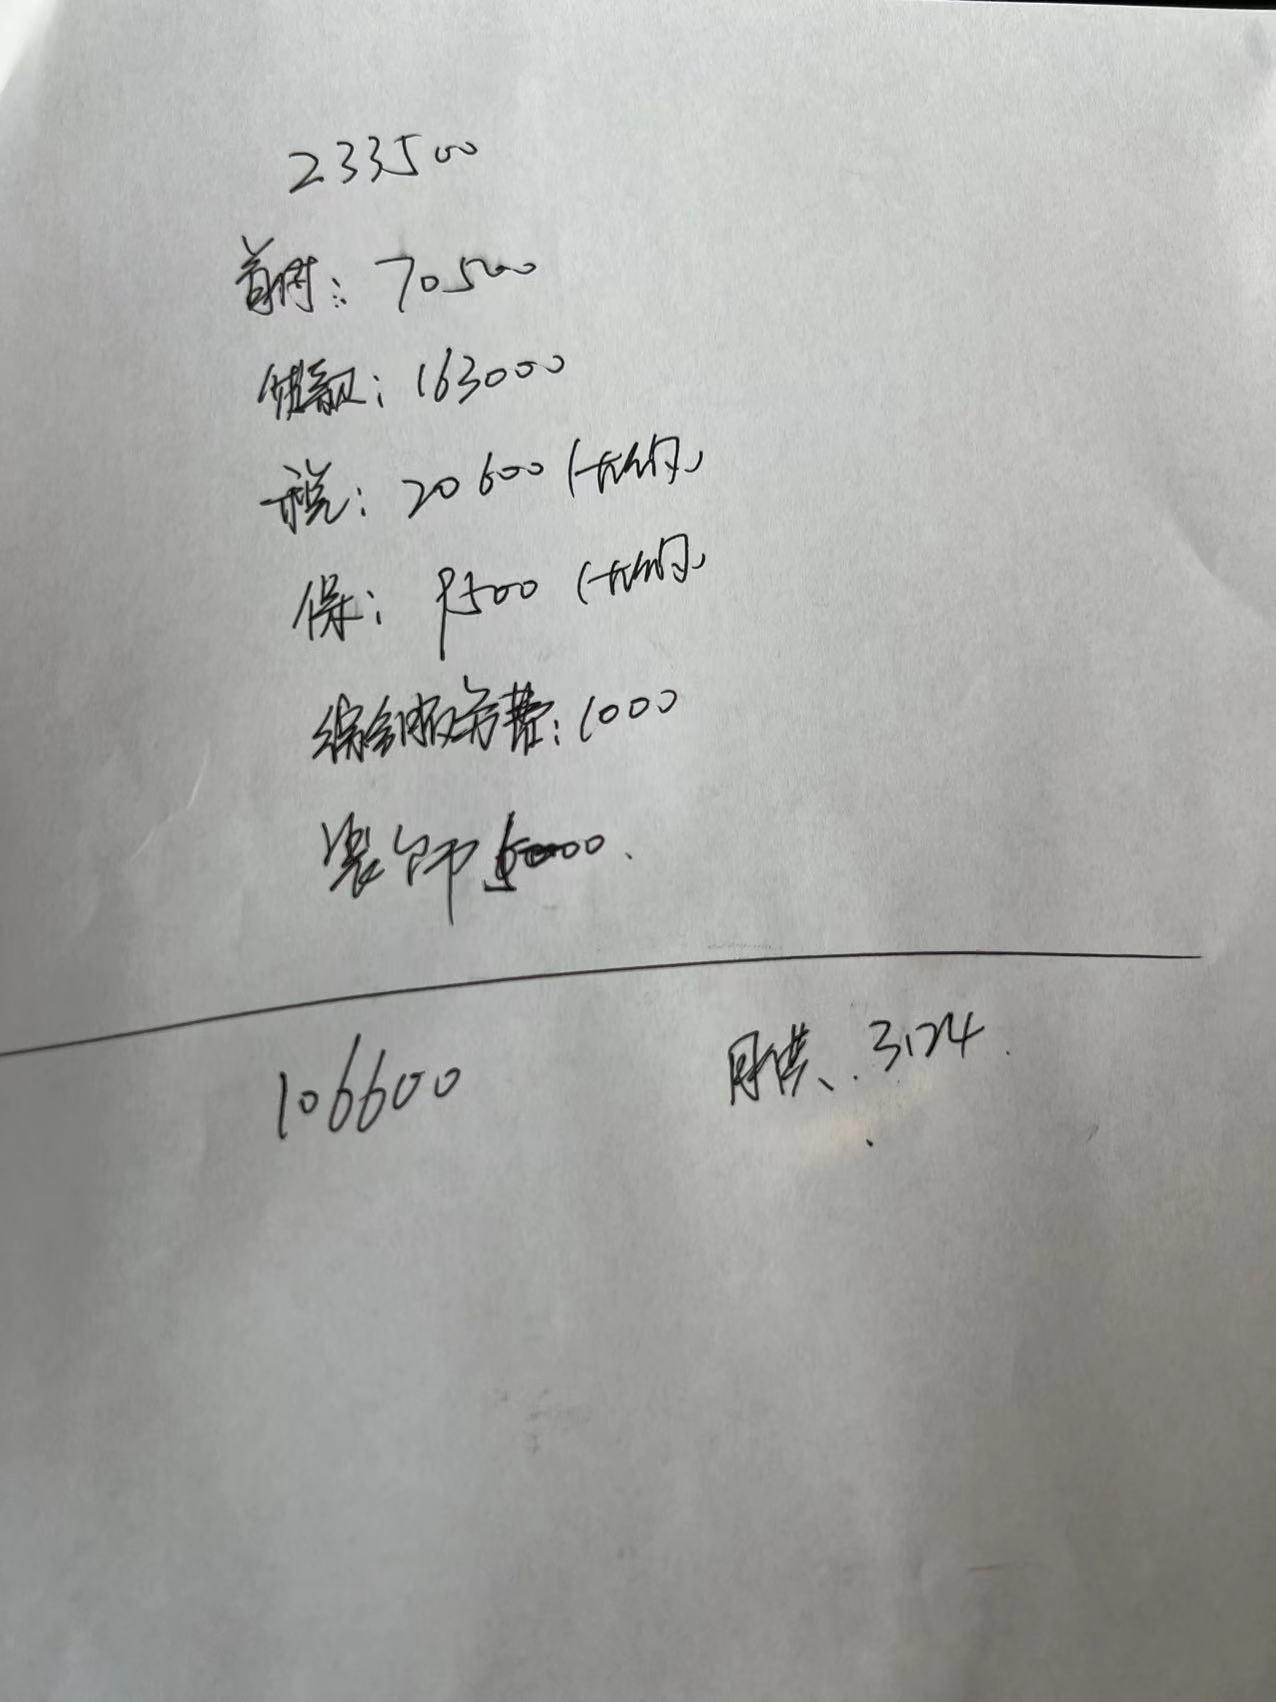 233500
首付：70500
贷款：163000
税：20600（大约）
保：9500（大约）
综合服务费：1000
装饰 5000.
106600
月供、3124.